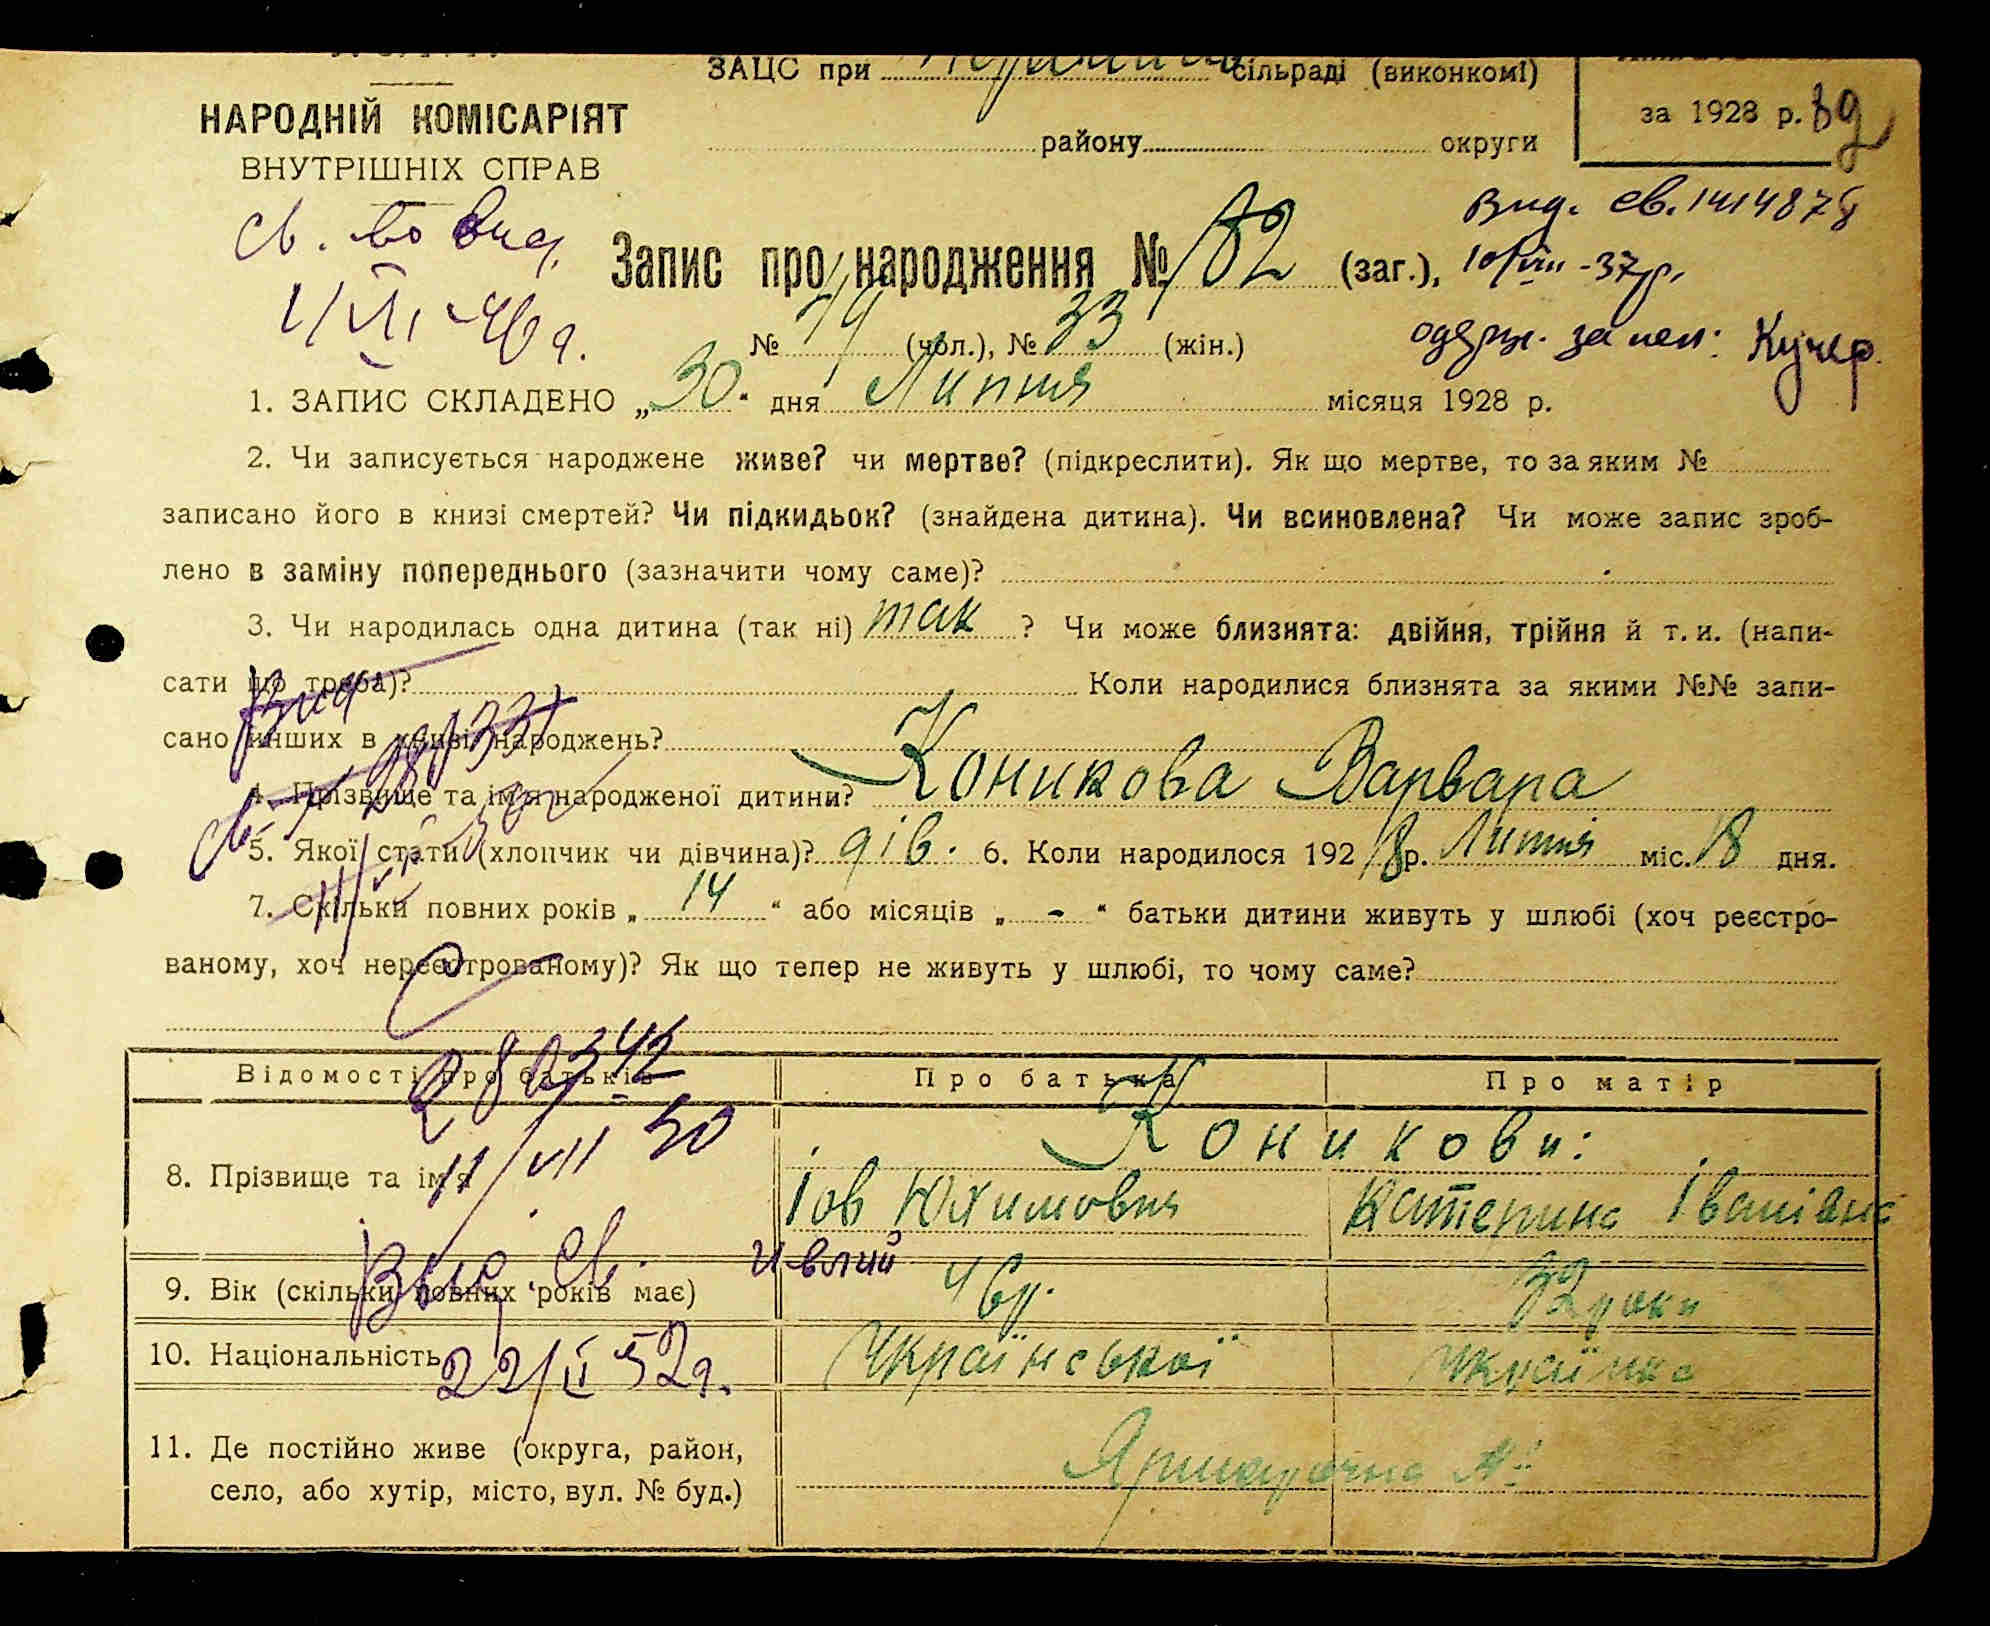 ЗАЦС при сільраді (виконкомі)
НАРОДНІЙ КОМІСАРІЯТ
ВНУТРІШНІХ СПРАВ
району округи
за 1928 р. 89
Вид. св. 1414878
св. во вид.
Запис про народження № 82 (заг.), 10/VIII -37р.
1/VII -40 г.
№ 49 (чол.), № 33 (жін.)
Кучер.
1. ЗАПИС СКЛАДЕНО „30“ дня Липня місяця 1928 р.
2. Чи записується народжене живе? чи мертве? (підкреслити). Як що мертве, то за яким №
записано його в книзі смертей? Чи підкидьок? (знайдена дитина). Чи всиновлена? Чи може запис зроб-
лено в заміну попереднього (зазначити чому саме)?
3. Чи народилась одна дитина (так ні) так ? Чи може близнята: двійня, трійня й т. и. (напи-
сати що треба)? Коли народилися близнята за якими №№ запи-
сано инших в книзі народжень?
4. Прізвище та ім'я народженої дитини? Коникова Варвара
5. Якої стати (хлопчик чи дівчина)? дів. 6. Коли народилося 1928 р. Липня міс. 18 дня.
7. Скільки повних років „ 14 “ або місяців „ - “ батьки дитини живуть у шлюбі (хоч реєстро-
ваному, хоч нереєстрованому)? Як що тепер не живуть у шлюбі, то чому саме?
280342
11/VII 50
Відомості про батьків Про батька Про матір
Коникови:
8. Прізвище та ім'я Іов Юхимович Катерина Іванівна
Выд. св.
22/II 52г.
9. Вік (скільки повних років має) 46р. 32 роки
10. Національність Української Українка
11. Де постійно живе (округа, район,
село, або хутір, місто, вул. № буд.) Ярмарочна №